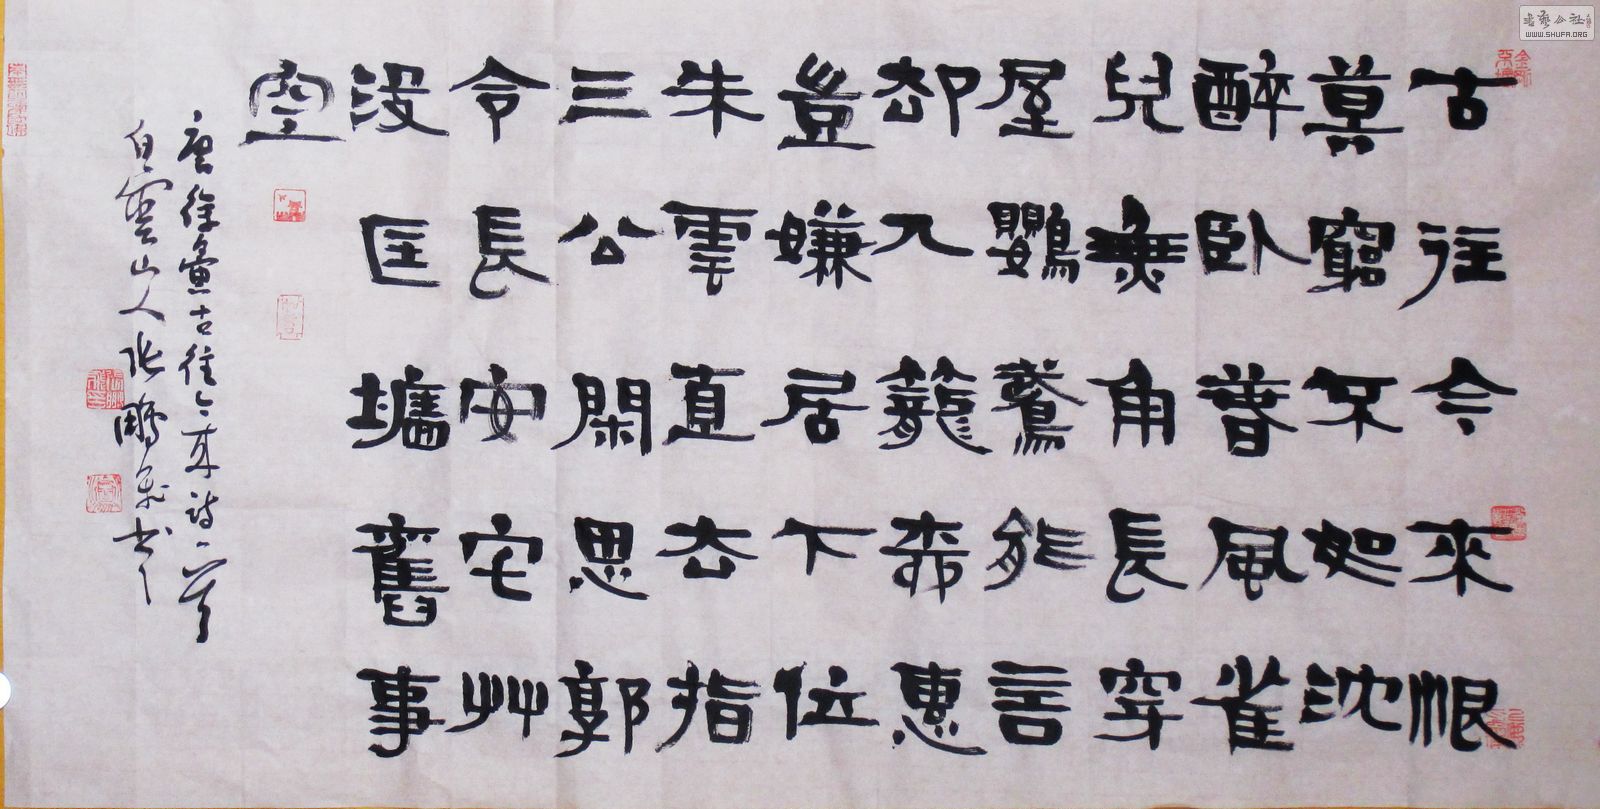 古往今來恨
莫窮不如沈
醉臥春風雀
兒無角長穿
屋鸚鵡能言
却入籠柰惠
豈嫌居下位
朱雲直去指
三公閑思郭
令長安宅艸
沒匡墻舊事
空
唐徐夤古往今來詩一首
白雲山人張鵬飛书
书艺公社
WWW.SHUFA.ORG